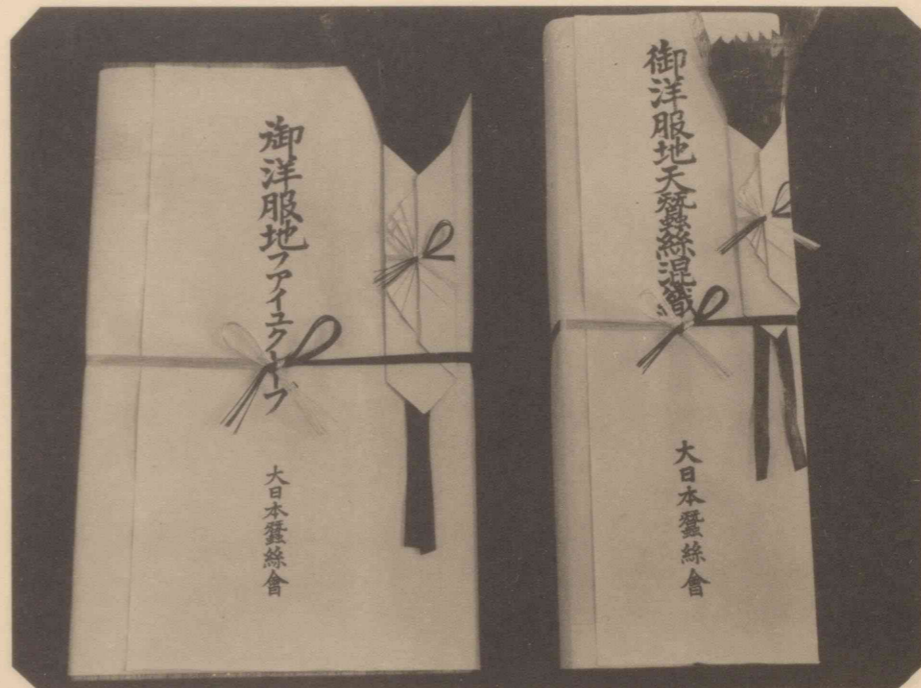 御洋服地天蠶絲混織
大日本蠶絲會
御洋服地フアイユクレープ
大日本蠶絲會